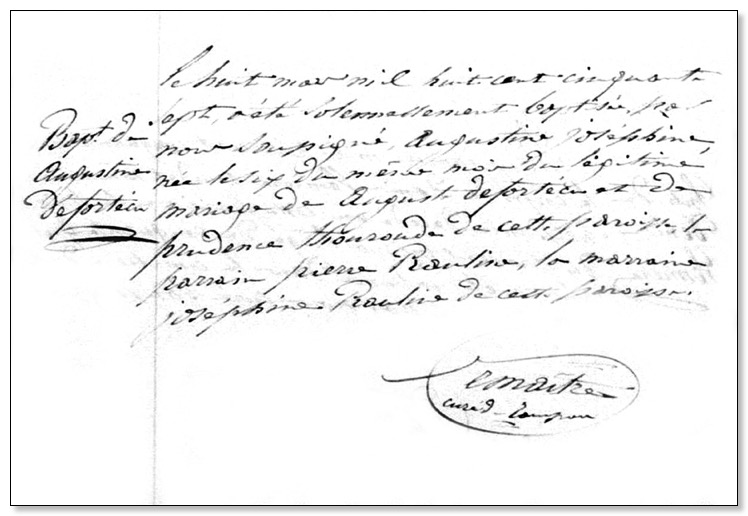 Bapt. de
Augustine
Defortécu
le huit mars mil huit cent cinquante
sept, a été solennellement baptisée, par
nous soussigné, Augustine joséphine,
née le six du même mois du légitime
mariage de August defortécu et de
prudence thouroude de cett. paroisse, le
parrain pierre Rauline, la marraine
joséphine Rauline de cett. paroisse.
Lemaitre
curé d